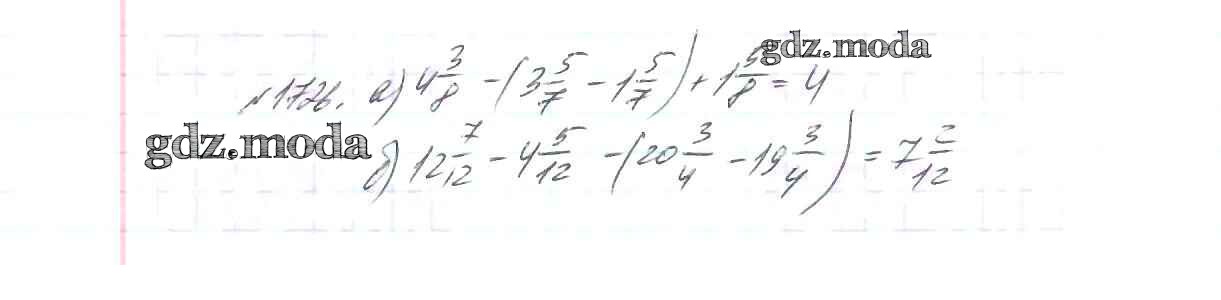 gdz.moda
№1726. а) 4 3/8 - (3 5/7 - 1 5/7) + 1 5/8 = 4
gdz.moda
б) 12 7/12 - 4 5/12 - (20 3/4 - 19 3/4) = 7 2/12